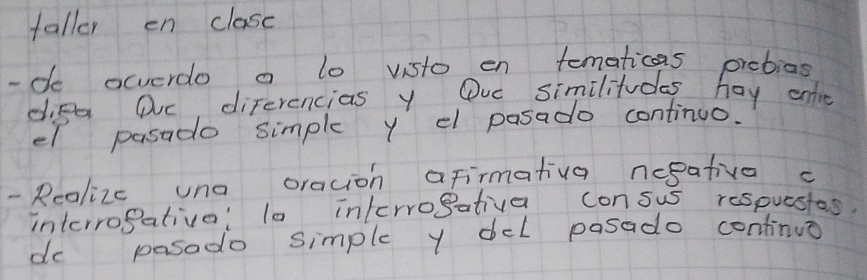 taller en clase
- de acuerdo a lo visto en tematicas probias
diga Que diferencias y Que similitudes hay entre
el pasado simple y el pasado continuo.
- Realize una oración afirmativa negativa e
interrogativa; la interrogativa con sus respuestas.
de pasado simple y del pasado continuo